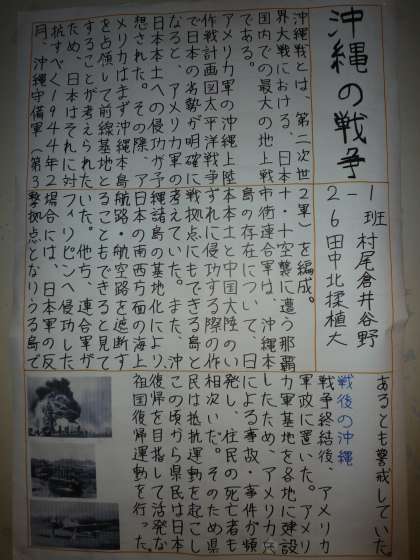 沖縄の戦争
沖縄戦とは、第二次世
界大戦における、日本
国内での最大の地上戦
である。
アメリカ軍の沖縄上陸
作戦計画図太平洋戦争
で日本の劣勢が明確に
なると、アメリカ軍の
日本本土への侵攻が予
想された。その際、ア
メリカはまず沖縄本島
を占領して前線基地と
することが考えられた
ため、日本はそれに対
抗すべく1944年2
月、沖縄守備軍（第3
1班 村尾倉井谷野
1-26 田中北揉植大
2軍）を編成。
十・十空襲に遭う那覇
市街連合軍は、沖縄本
島の存在について、日
本本土と中国大陸のい
ずれに侵攻する際の作
戦拠点にもできると
考えていた。また、沖
縄諸島の基地化により、
日本の南西方面の海上
航路・航空路を遮断す
ることもできると見て
いた。他ち、連合軍が
フィリピンへ侵攻した
場合には、日本軍の反
撃拠点とかりうる島で
あるとも警戒していた
戦後の沖縄
戦争終結後、アメリカ
軍政に置いた。アメリ
カ軍基地を各地に建設
したため、アメリカ兵
による事故・事件が頻
発し、住民の死亡者も
相次いだ。そのため県
民は抵抗運動を起こし
この頃から県民は日本
復帰を目指して活発な
祖国復帰運動を行った。